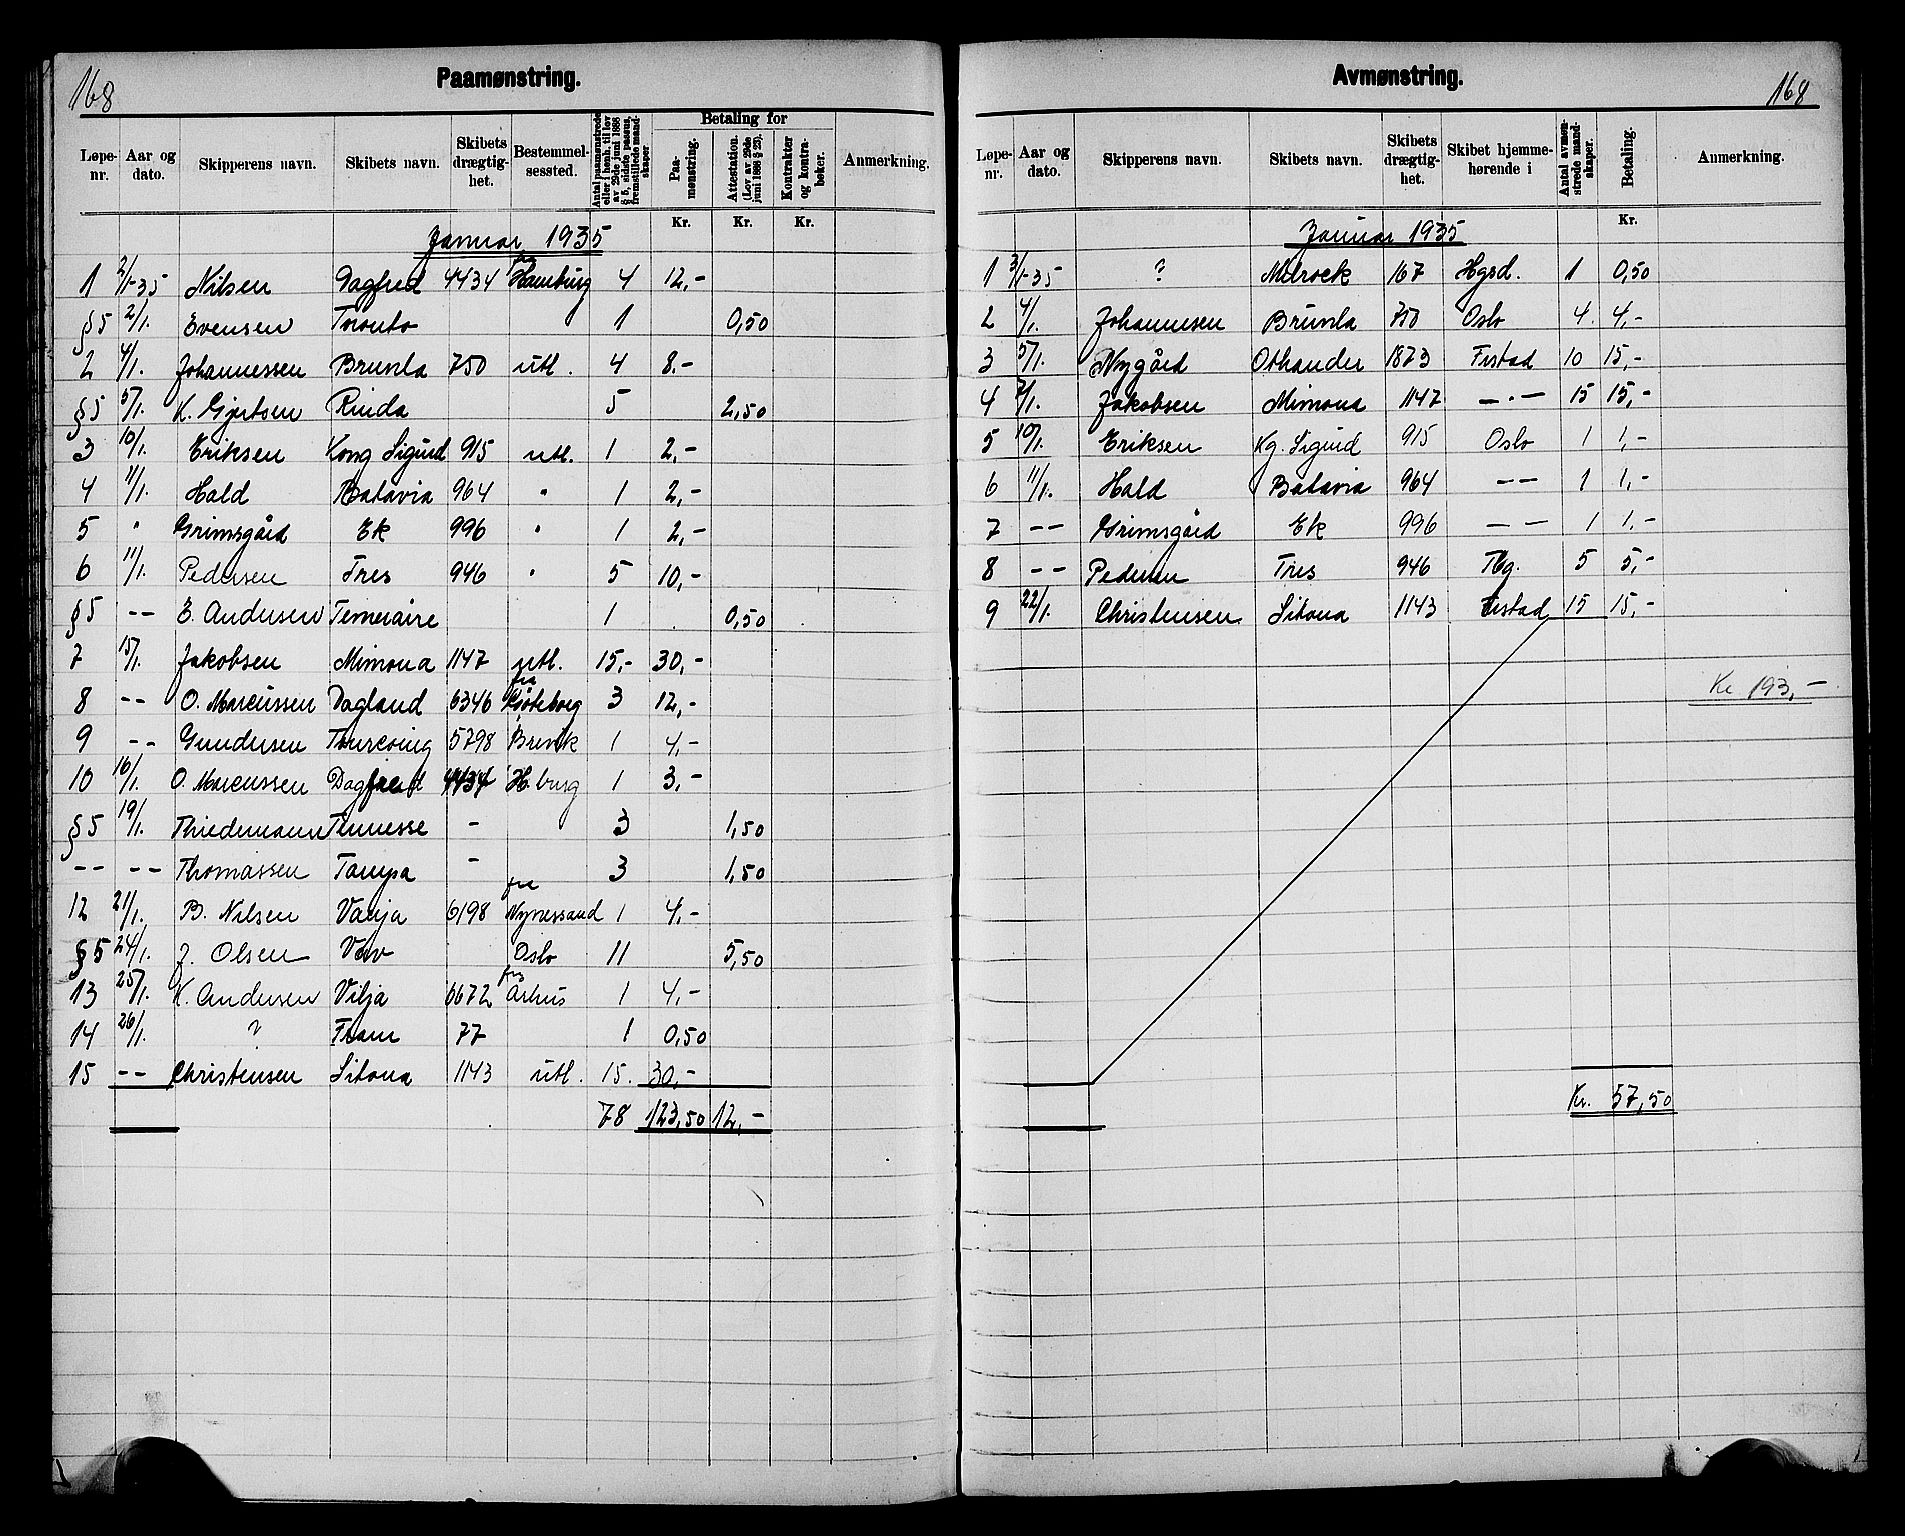 168
Paamønstring.
Løpe-nr. Aar og dato. Skipperens navn. Skibets navn. Skibets drægtig-het. Bestemmel-sessted. Antal paamønstrede eller i henh. til lov av 29de juni 1888 § 5, sidste passus, fremstillede mand-skaper Betaling for Paa-mønstring. Attestation. (Lov av 29de juni 1888 § 23). Kontrakter og kontra-bøker. Anmerkning.
Kr. Kr. Kr.
Januar 1935
1 2/1-35 Nilsen Dagfred 4434 fra Hamburg 4 12,-
§5 2/1. Evensen Toronto 1 0,50
2 4/1. Johannessen Brunla 750 utl. 4 8.-
§5 5/1. K. Gjertsen Rinda 5 2,50
3 10/1. Eriksen Kong Sigurd 915 utl. 1 2,-
4 11/1. Hald Batavia 964 " 1 2,-
5 " Grimsgård Ek 996 " 1 2,-
6 11/1. Pedersen Tres 946 " 5 10,-
§5 -- E. Andersen Temeraire 1 0,50
7 15/1. Jakobsen Mimona 1147 utl. 15,- 30,-
8 -- O. Marcussen Dagland 6346 fra Gøteborg 3 12,-
9 -- Gundersen Tourcoing 5798 Brevik 1 4,-
10 16/1. O. Marcussen Dagfred 4434 H.burg 1 3,-
§5 19/1. Thiedemann Tennesse - 3 1,50
-- -- Thomassen Tampa - 3 1,50
12 21/1. B. Nilsen Vanja 6198 fra Nynessand 1 4,-
§5 24/1. J. Olsen Vav Oslo 11 5,50
13 25/1. K. Andersen Vilja 6672 fra Århus 1 4,-
14 26/1. ? Fram 77 1 0,50
15 -- Christensen Sitona 1143 utl. 15. 30,-
78 123,50 12,-
Avmønstring.
168
Løpe-nr. Aar og dato. Skipperens navn. Skibets navn. Skibets drægtig-het. Skibet hjemme-hørende i Antal avmøn-strede mand-skaper. Betaling. Anmerkning.
Kr.
Januar 1935
1 3/1-35 ? Milrock 167 Hgsd. 1 0,50
2 4/1. Johannesen Brunla 750 Oslo 4. 4,-
3 5/1. Nygård Othander 1873 Frstad 10 15,-
4 7/1. Jakobsen Mimona 1147 -"- 15 15,-
5 10/1. Eriksen Kg. Sigurd 915 Oslo 1 1,-
6 11/1. Hald Batavia 964 -- 1 1,-
7 -- Grimsgård Ek 996 -- 1 1,-
8 -- Pedersen Tres 946 Tbg. 5 5,-
9 22/1. Christensen Sitona 1143 Frstad 15 15,-
Kr 193,-
Kr. 57,50